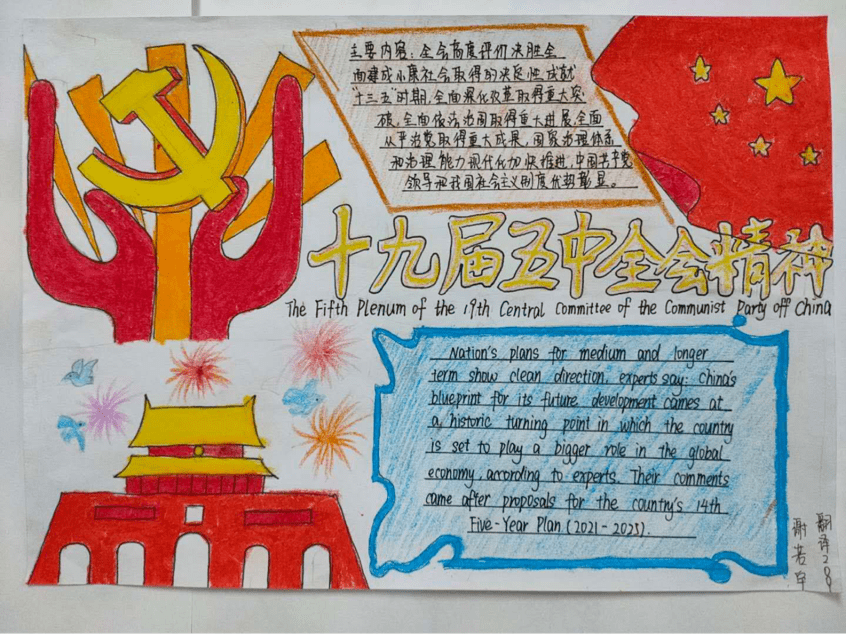 主要内容：全会高度评价决胜全
面建成小康社会取得的决定性成就
"十三五"时期，全面深化改革取得重大突
破，全面依法治国取得重大进展，全面
从严治党取得重大成果，国家治理体系
和治理能力现代化加快推进，中国共产党
领导和我国社会主义制度优势彰显。
十九届五中全会精神
The Fifth Plenum of the 19th Central Committee of the Communist Party off China
Nation's plans for medium and longer
term show clean direction, experts say: China's
blueprint for its future development comes at
a historic turning point in which the country
is set to play a bigger role in the global
economy, according to experts. Their comments
came after proposals for the country's 14th
Five-Year Plan (2021-2025).
翻译2
谢若